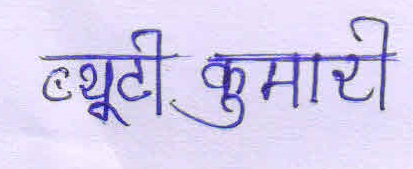 ब्यूटी कुमारी